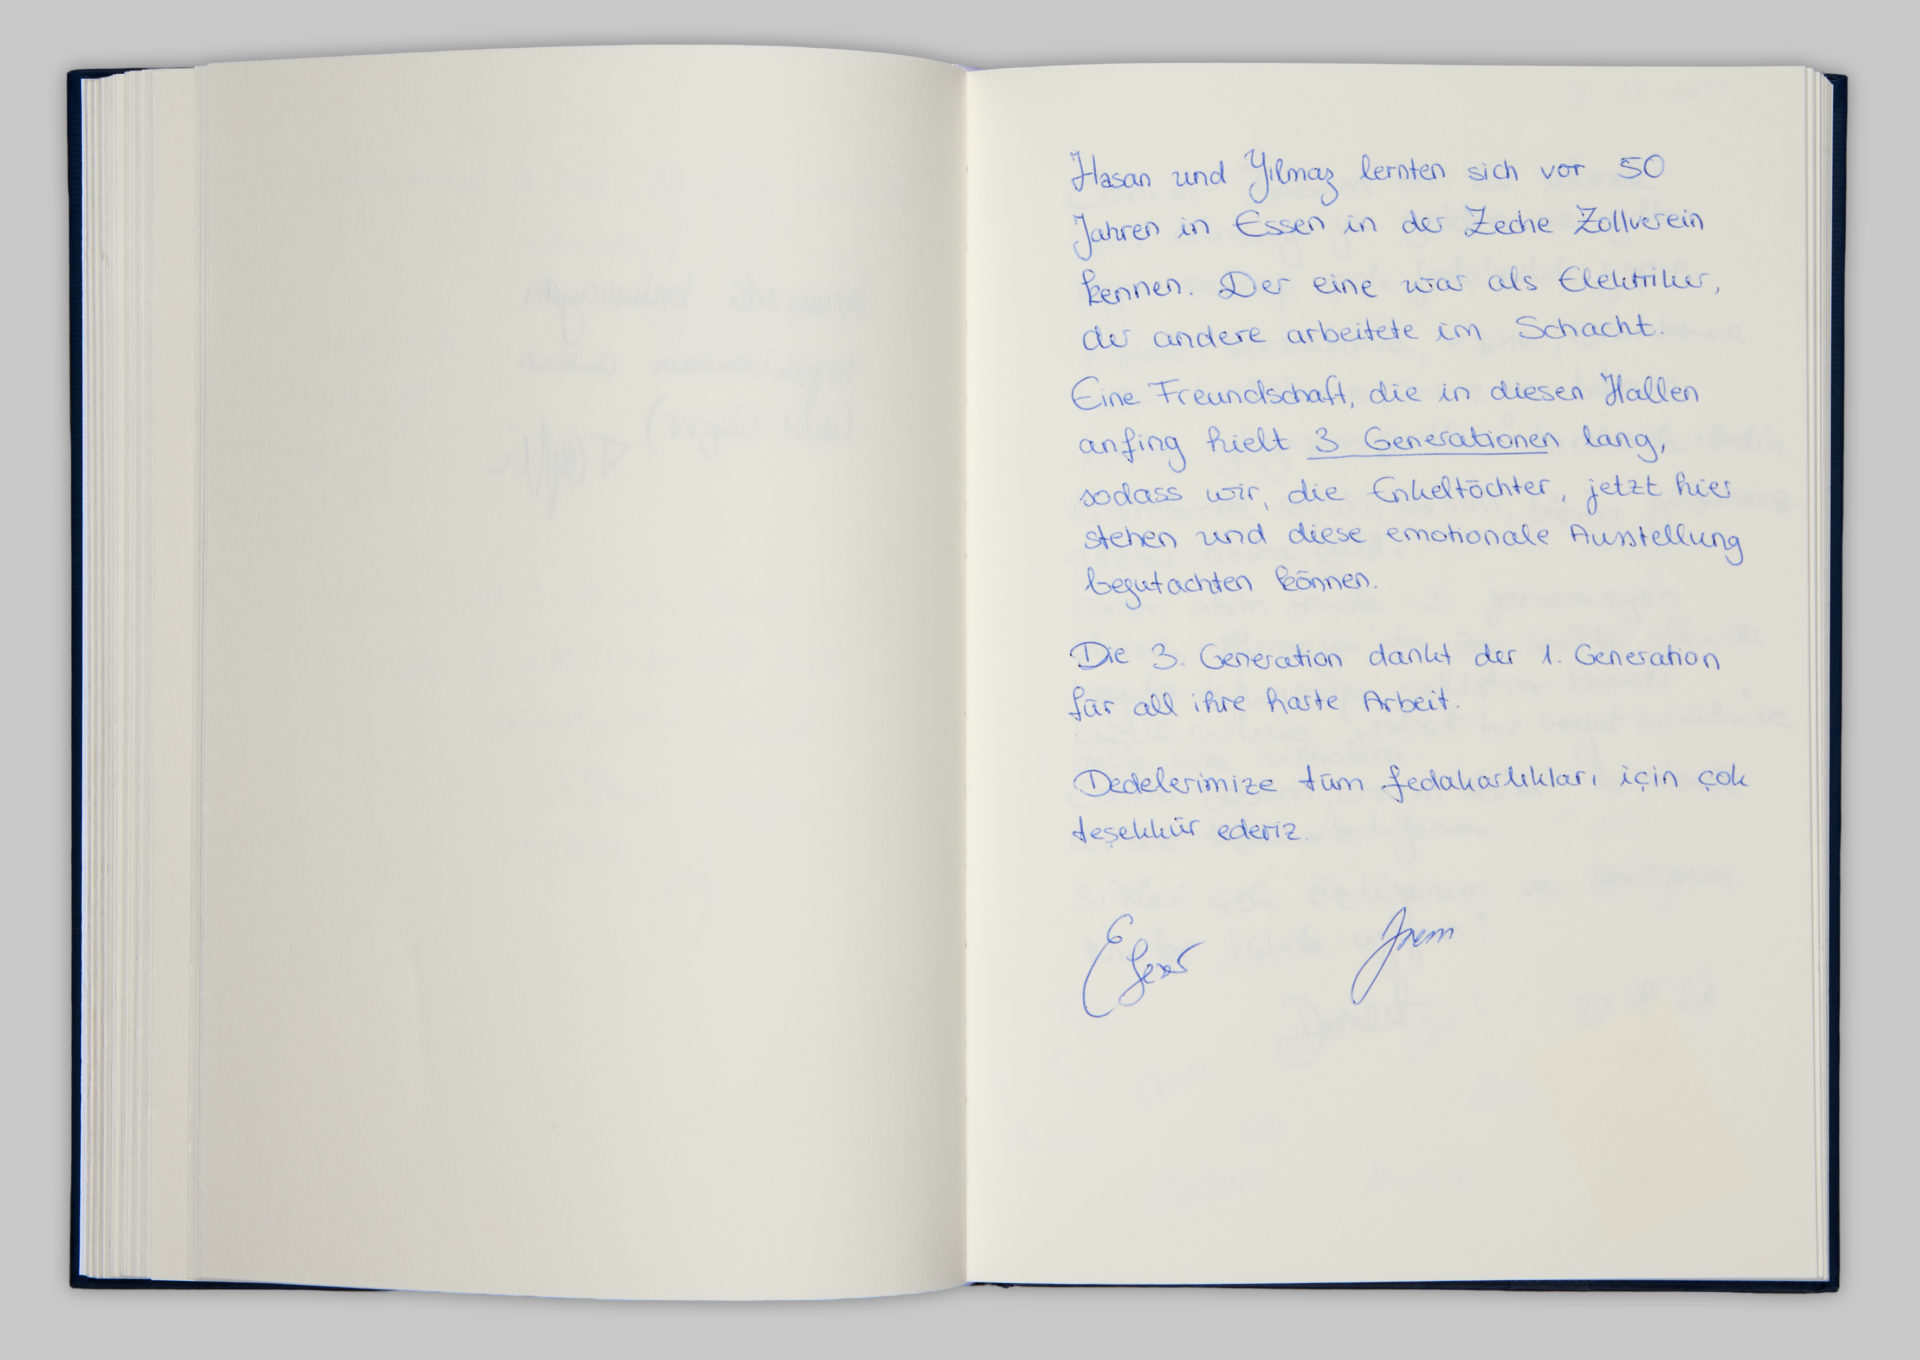 Hasan und Yilmaz lernten sich vor 50
Jahren in Essen in der Zeche Zollverein
kennen. Der eine war als Elektriker,
der andere arbeitete im Schacht.
Eine Freundschaft, die in diesen Hallen
anfing hielt 3 Generationen lang,
sodass wir, die Enkeltöchter, jetzt hier
stehen und diese emotionale Ausstellung
begutachten können.
Die 3. Generation dankt der 1. Generation
für all ihre harte Arbeit.
Dedelerimize tüm fedakarlıkları için çok
teşekkür ederiz.
Irem